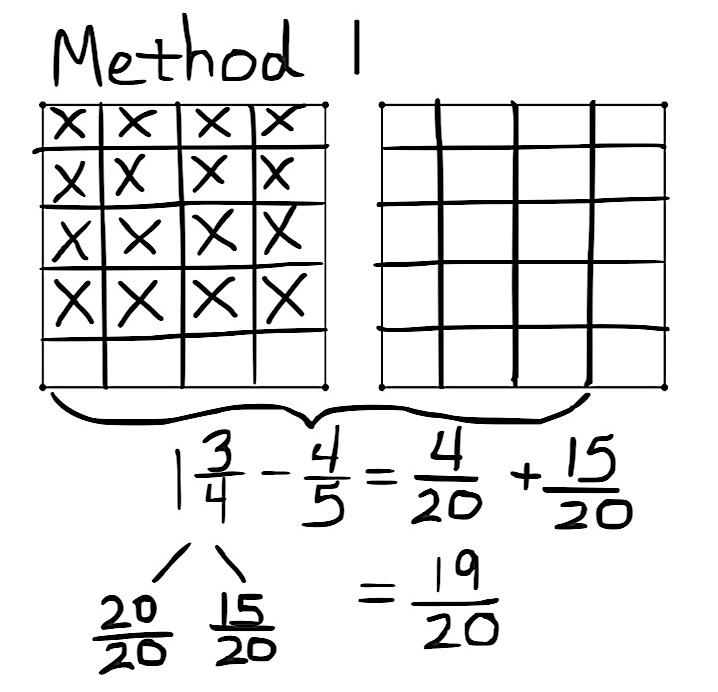 Method 1
X X X X
X X X X
X X X X
X X X X
1 3/4 - 4/5 = 4/20 + 15/20
20/20 15/20
= 19/20